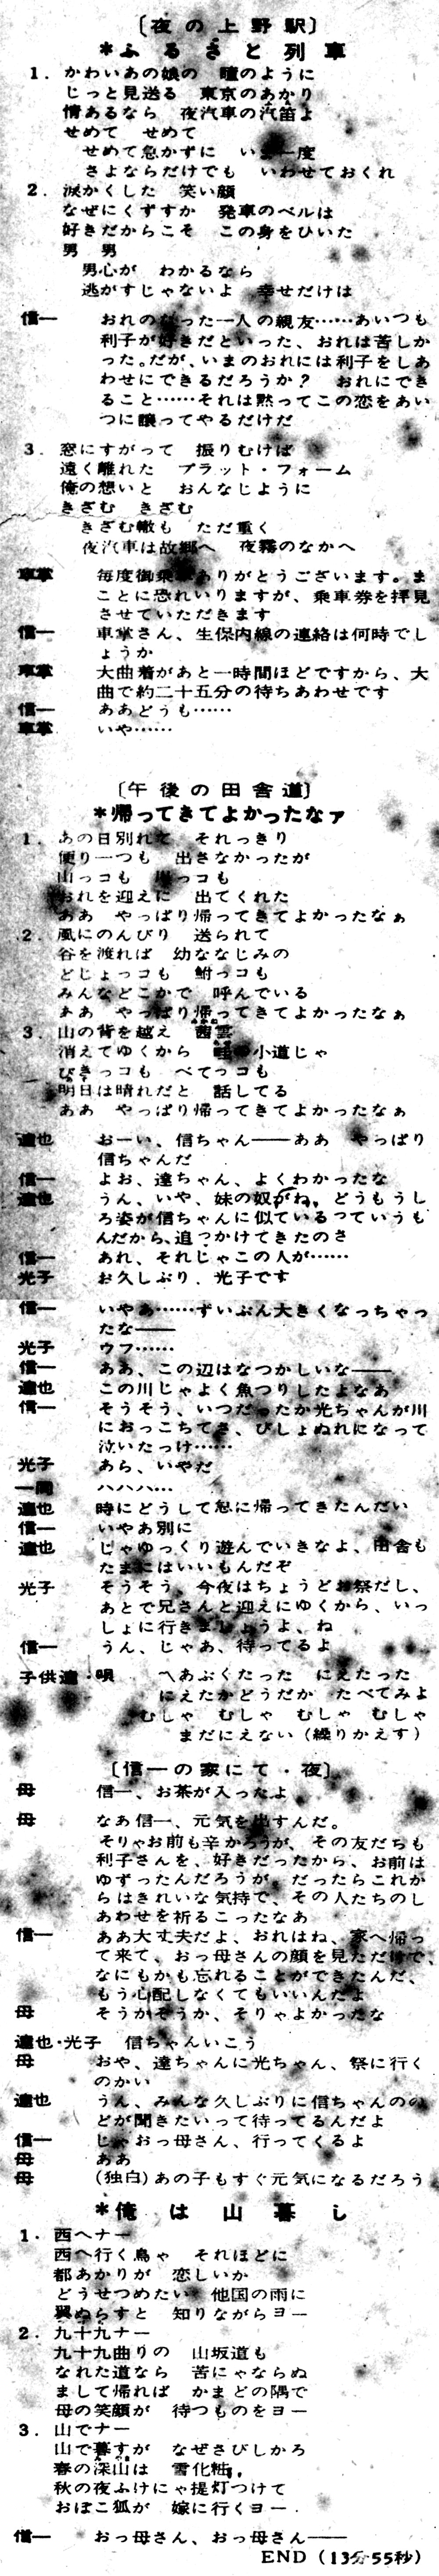 〔夜の上野駅〕
*ふるさと列車
1. かわいあの娘の 瞳のように
じっと見送る 東京のあかり
情あるなら 夜汽車の汽笛よ
せめて せめて
せめて急かずに い 一度
さよならだけでも いわせておくれ
2. 涙かくした 笑い顔
なぜにくずすか 発車のベルは
好きだからこそ この身をひいた
男 男
男心が わかるなら
逃がすじゃないよ 幸せだけは
信一 おれのたった一人の親友……あいつも
利子が好きだといった、おれは苦しか
った。だが、いまのおれには利子をしあ
わせにできるだろうか? おれにでき
ること……それは黙ってこの恋をあい
つに譲ってやるだけだ
3. 窓にすがって 振りむけば
遠く離れた プラット・フォーム
俺の想いと おんなじように
きざむ きざむ
きざむ轍も ただ重く
夜汽車は故郷へ 夜霧のなかへ
車掌 毎度御乗車ありがとうございます。ま
ことに恐れいりますが、乗車券を拝見
させていただきます
信一 車掌さん、生保内線の連絡は何時でし
ょうか
車掌 大曲着があと一時間ほどですから、大
曲で約二十五分の待ちあわせです
信一 ああどうも……
車掌 いや……
〔午後の田舎道〕
*帰ってきてよかったなァ
1. あの日別れて それっきり
便り一つも 出さなかったが
山っコも っコも
おれを迎えに 出てくれた
ああ やっぱり帰ってきてよかったなぁ
2. 風にのんびり 送られて
谷を渡れば 幼ななじみの
どじょっコも 鮒っコも
みんなどこかで 呼んでいる
ああ やっぱり帰ってきてよかったなぁ
3. 山の背を越え 茜雲
消えてゆくから 小道じゃ
びきっコも べてっコも
明日は晴れだと 話してる
ああ やっぱり帰ってきてよかったなぁ
達也 おーい、信ちゃん――ああ やっぱり
信ちゃんだ
信一 よお、達ちゃん、よくわかったな
達也 うん、いや、妹の奴がね、どうもうし
ろ姿が信ちゃんに似ているっていうも
んだから、追っかけてきたのさ
信一 あれ、それじゃこの人が……
光子 お久しぶり、光子です
信一 いやあ……ずいぶん大きくなっちゃっ
たな――
光子 ウフ……
信一 ああ、この辺はなつかしいな――
達也 この川じゃよく魚つりしたよなあ
信一 そうそう、いつだったか光ちゃんが川
におっこちてさ、びしょぬれになって
泣いたっけ……
光子 あら、いやだ
一同 ハハハ…
達也 時にどうして急に帰ってきたんだい
信一 いやあ別に
達也 じゃゆっくり遊んでいきなよ、田舎も
たまにはいいもんだぞ
光子 そうそう、今夜はちょうどお祭だし、
あとで兄さんと迎えにゆくから、いっ
しょに行きましょうよ、ね
信一 うん、じゃあ、待ってるよ
子供達・唄 〽あぶくたった にえたった
にえたかどうだか たべてみよ
むしゃ むしゃ むしゃ むしゃ
まだにえない(繰りかえす)
〔信一の家にて・夜〕
母 信一、お茶が入ったよ
母 なあ信一、元気を出すんだ。
そりゃお前も辛かろうが、その友だちも
利子さんを、好きだったから、お前は
ゆずったんだろうが、だったらこれか
らはきれいな気持で、その人たちのし
あわせを祈るこったなあ
信一 ああ大丈夫だよ、おれはね、家へ帰っ
て来て、おっ母さんの顔を見ただけで、
なにもかも忘れることができたんだ、
もう心配しなくてもいいんだよ
母 そうかそうか、そりゃよかったな
達也・光子 信ちゃんいこう
母 おや、達ちゃんに光ちゃん、祭に行く
のかい
達也 うん、みんな久しぶりに信ちゃんのの
どが聞きたいって待ってるんだよ
信一 じゃおっ母さん、行ってくるよ
母 ああ
母 (独白)あの子もすぐ元気になるだろう
*俺は山暮し
1. 西へナー
西へ行く鳥ゃ それほどに
都あかりが 恋しいか
どうせつめたい 他国の雨に
翼ぬらすと 知りながらヨー
2. 九十九ナー
九十九曲りの 山坂道も
なれた道なら 苦にゃならぬ
まして帰れば かまどの隅で
母の笑顔が 待つものをヨー
3. 山でナー
山で暮すが なぜさびしかろ
春の深山は 雪化粧
秋の夜ふけにゃ提灯つけて
おぼこ狐が 嫁に行くヨー
信一 おっ母さん、おっ母さん――
END(13分55秒)